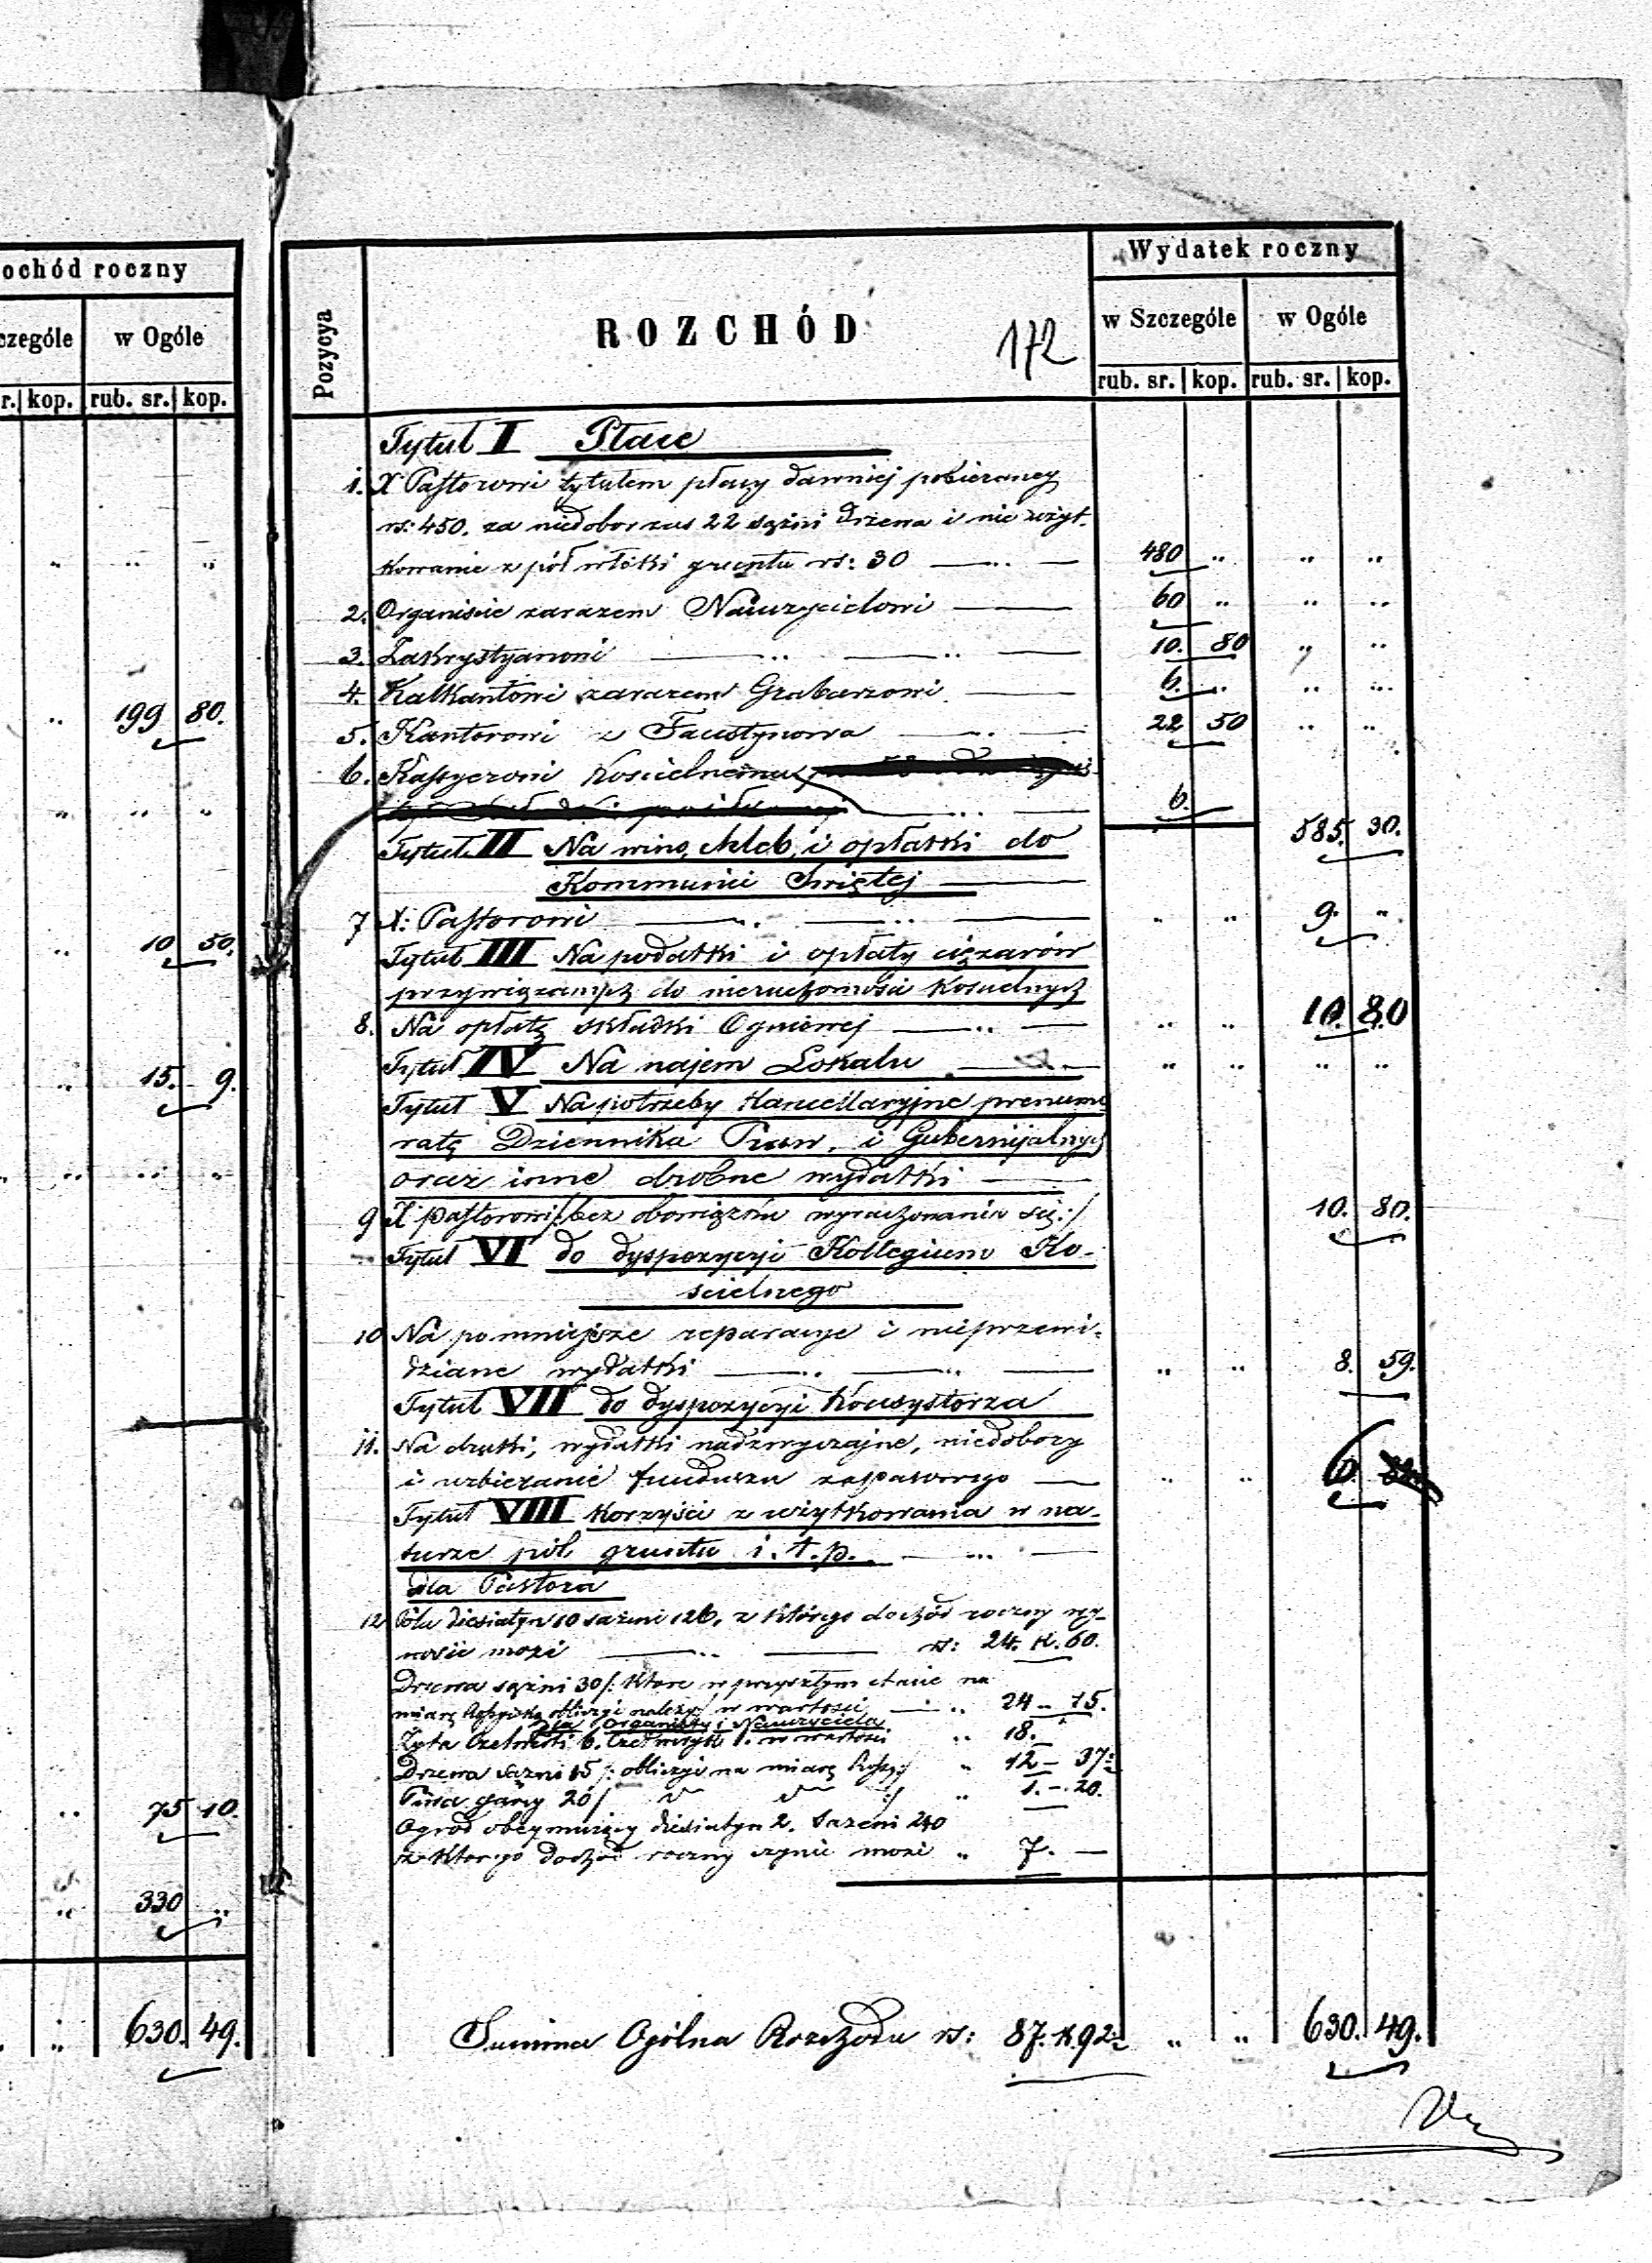 ochód roczny
czególe w Ogóle
r. kop. rub. sr. kop.
" " "
" 199 80.
" " "
" 10 50.
" 15. 9.
" " "
" 75 10.
" 330 "
" 630. 49.
Pozycya ROZCHÓD 172 Wydatek roczny
w Szczególe w Ogóle
rub. sr. kop. rub. sr. kop.
Tytuł I Płace
1. X Pastorowi tytułem płacy dawniej pobieraney
rs: 450. za niedobor zas 22 sążni drzewa i nie użyt-
kowanie z pół włóki gruntu rs: 30 480 " " "
2. Organiscie zarazem Nauczycielowi 60 " " "
3. Zakrystyanowi 10. 80 " "
4. Kalkantowi zarazem Grabarzowi 6. " " "
5. Kantorowi z Faustynowa 22 50 " "
6. Kassyerowi Koscielnemu
6. 585. 30.
Tytuł II Na wino, chleb, i opłatki do
Kommunii Swiętej
7 X: Pastorowi " " 9. "
Tytuł III Na podatki i opłaty ciężarów
przywiązanych do nieruchomości Koscielnych
8. Na opłatę składki Ogniowej " " 10. 80
Tytuł IV Na najem Lokalu " " " "
Tytuł V Na potrzeby Kancellaryjne prenume
ratę Dziennika Praw, i Gubernijalnych
oraz inne drobne wydatki
9 X pastorowi /:bez obowiązku wyrachowania się:/ 10. 80.
Tytuł VI do dyspozycyi Kollegium Ko-
scielnego
10 Na pomniejsze reparacye i nieprzewi-
dziane wydatki " " 8. 59.
Tytuł VII do dyspozycyi Konsystorza
11. Na druki, wydatki nadzwyczajne, niedobory
i uzbieranie funduszu zapasowego " " 6.
Tytuł VIII Korzyści z użytkowania w na-
turze pól gruntu i. t. p.
dla Pastora
12 Pola diesiatyn 10 sażeni 126, z którego dochód roczny wy-
nosić może rs: 24. k. 60.
Drzewa sążni 30 /: które w przyszłym etacie na
miarę obliczyć należy:/ w wartości " 24 - 75.
Dla Organisty i Nauczyciela
Żyta 6. w wartości " 18. -
Drzewa sążni 15 /: obliczyć na miarę :/ " 12 - 37½
20 / :/ " 1. - 20.
Ogród obeymujący diesiatyn 2. Sażeni 240
z którego dochód roczny czynić może " 7. —
Summa Ogólna Rozchodu rs: 87. k. 92½ " " 630. 49.